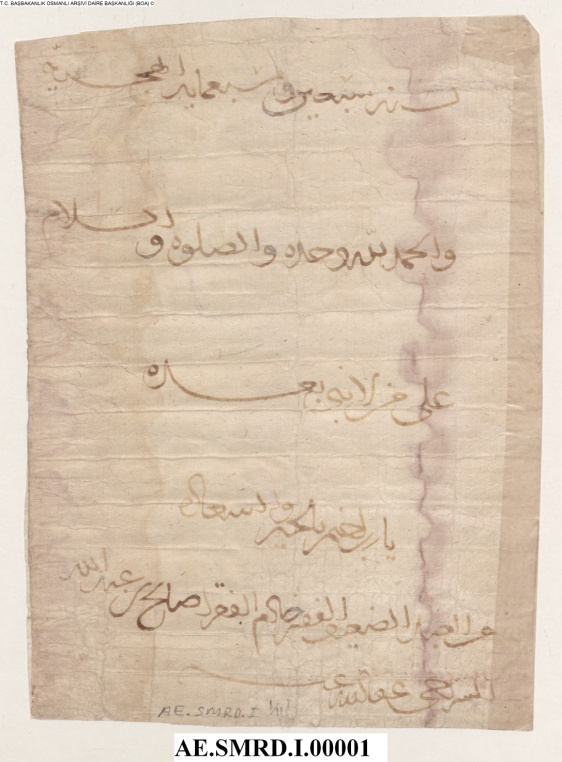 T.C. BAŞBAKANLIK OSMANLI ARŞİVİ DAİRE BAŞKANLIĞI (BOA) ©
سنة سبعين وسبعماية الهجرية
والحمد لله وحده والصلوة والسلام
على من لا نبي بعده
يا رب اختم بالخير والسعادة
العبد الضعيف الفقير خادم الفقرا صالح بن عبد الله
عفا الله عنه
AE.SMRD.I
AE.SMRD.I.00001